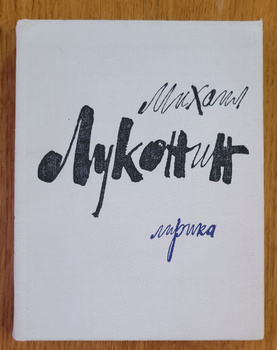 Михаил
Луконин
лирика